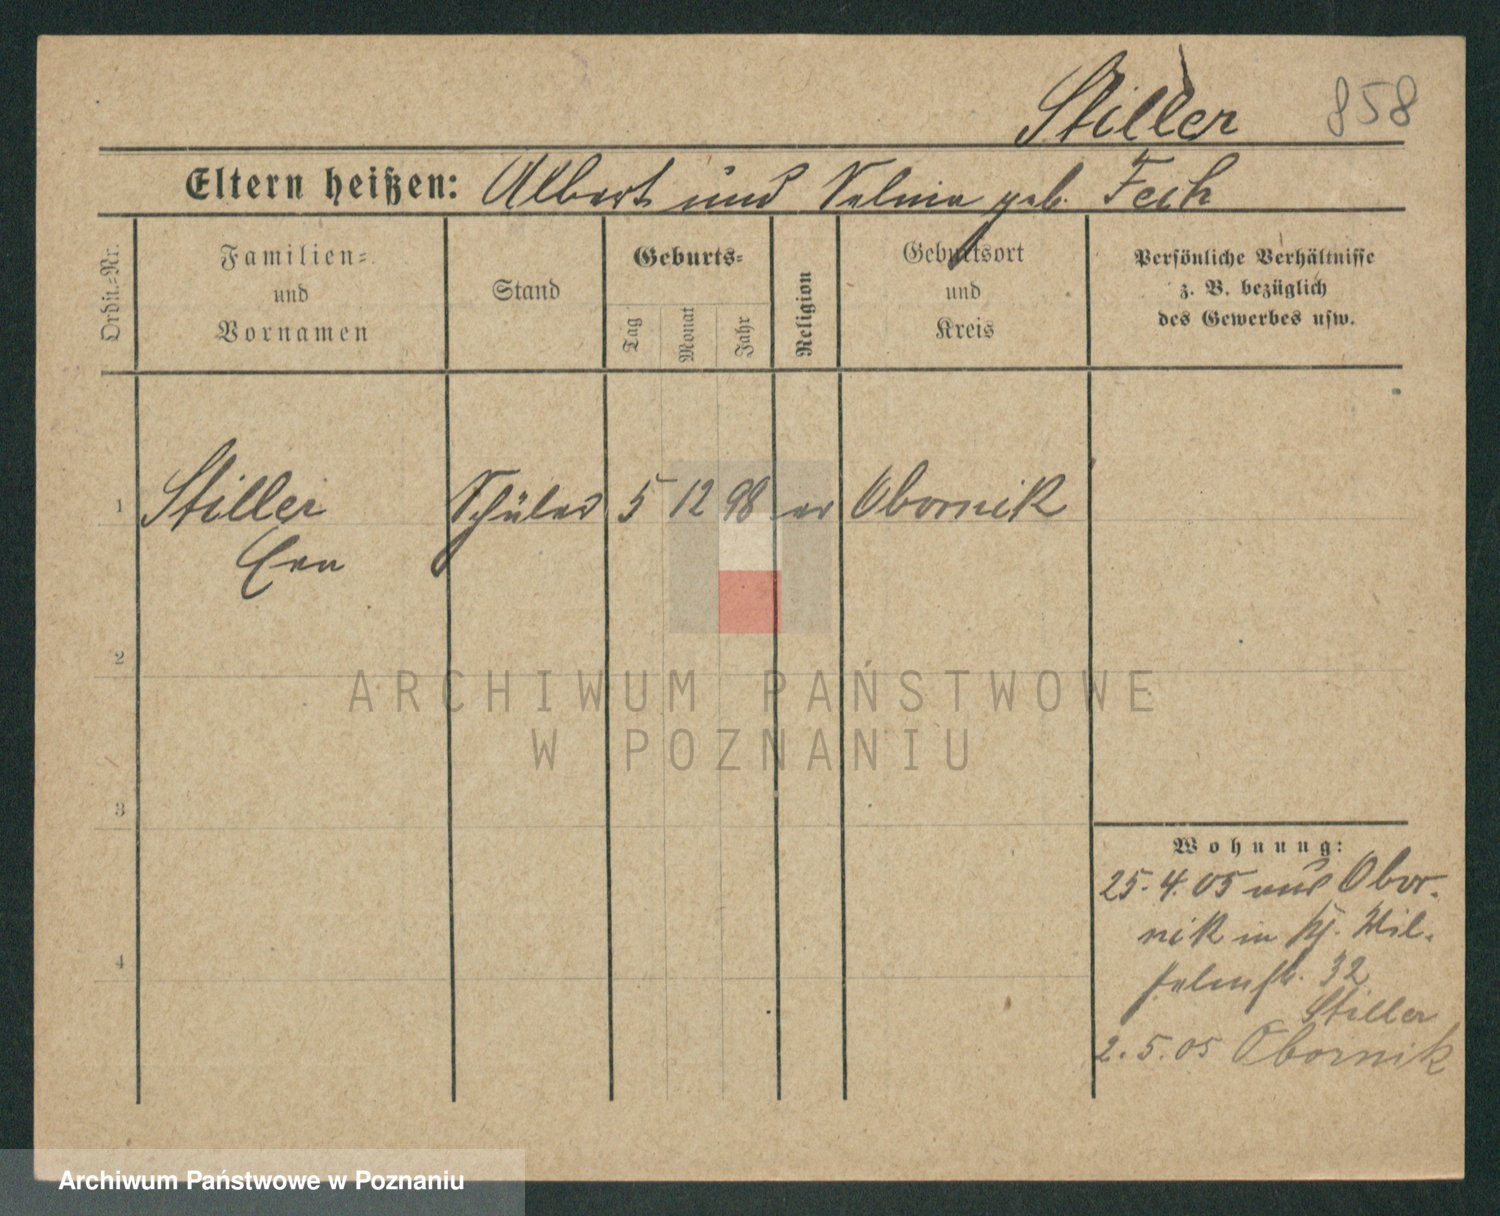 Stiller 858
Eltern heißen: Albert und Selma geb. Fech
Ordn.-Nr.
Familien-
und
Vornamen
Stand
Geburts-
Tag
Monat
Jahr
Religion
Geburtsort
und
Kreis
Persönliche Verhältnisse
z. B. bezüglich
des Gewerbes usw.
1 Stiller Schüler 5 12 98 ev Obornik
2
3
4
Wohnung:
25.4.05 aus Obor-
nik in Wil-
helmstr. 32
Stiller
2.5.05 Obornik
ARCHIWUM PAŃSTWOWE
W POZNANIU
Archiwum Państwowe w Poznaniu